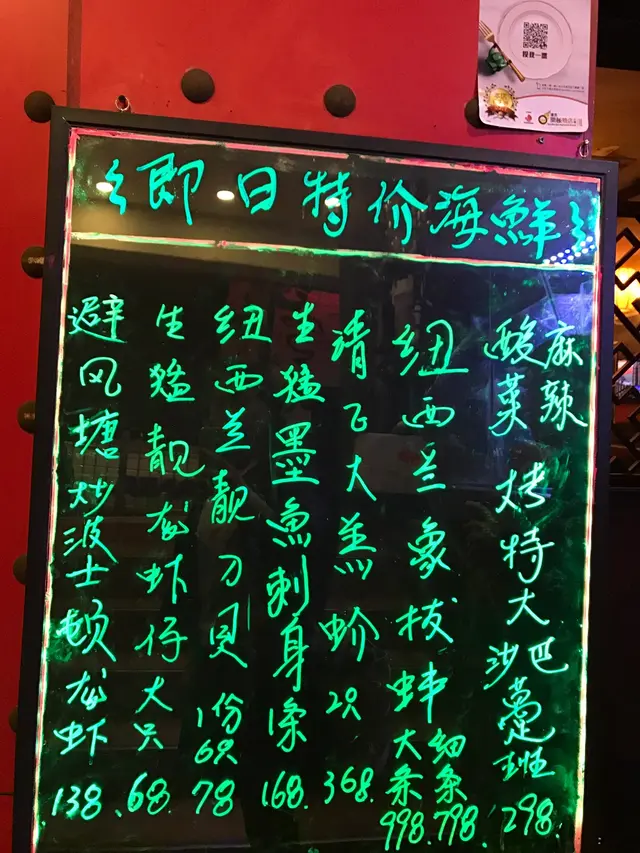 即日特价海鮮
麻辣
酸菜
烤特大沙巴躉班 298.
纽西兰象拔蚌
细条 798.
大条 998.
大羔蚧2只 368.
生猛墨魚刺身1条 168.
纽西兰靓刀贝 1份6只 78
生猛靓龙虾仔大只 68.
避风塘炒波士顿龙虾 138